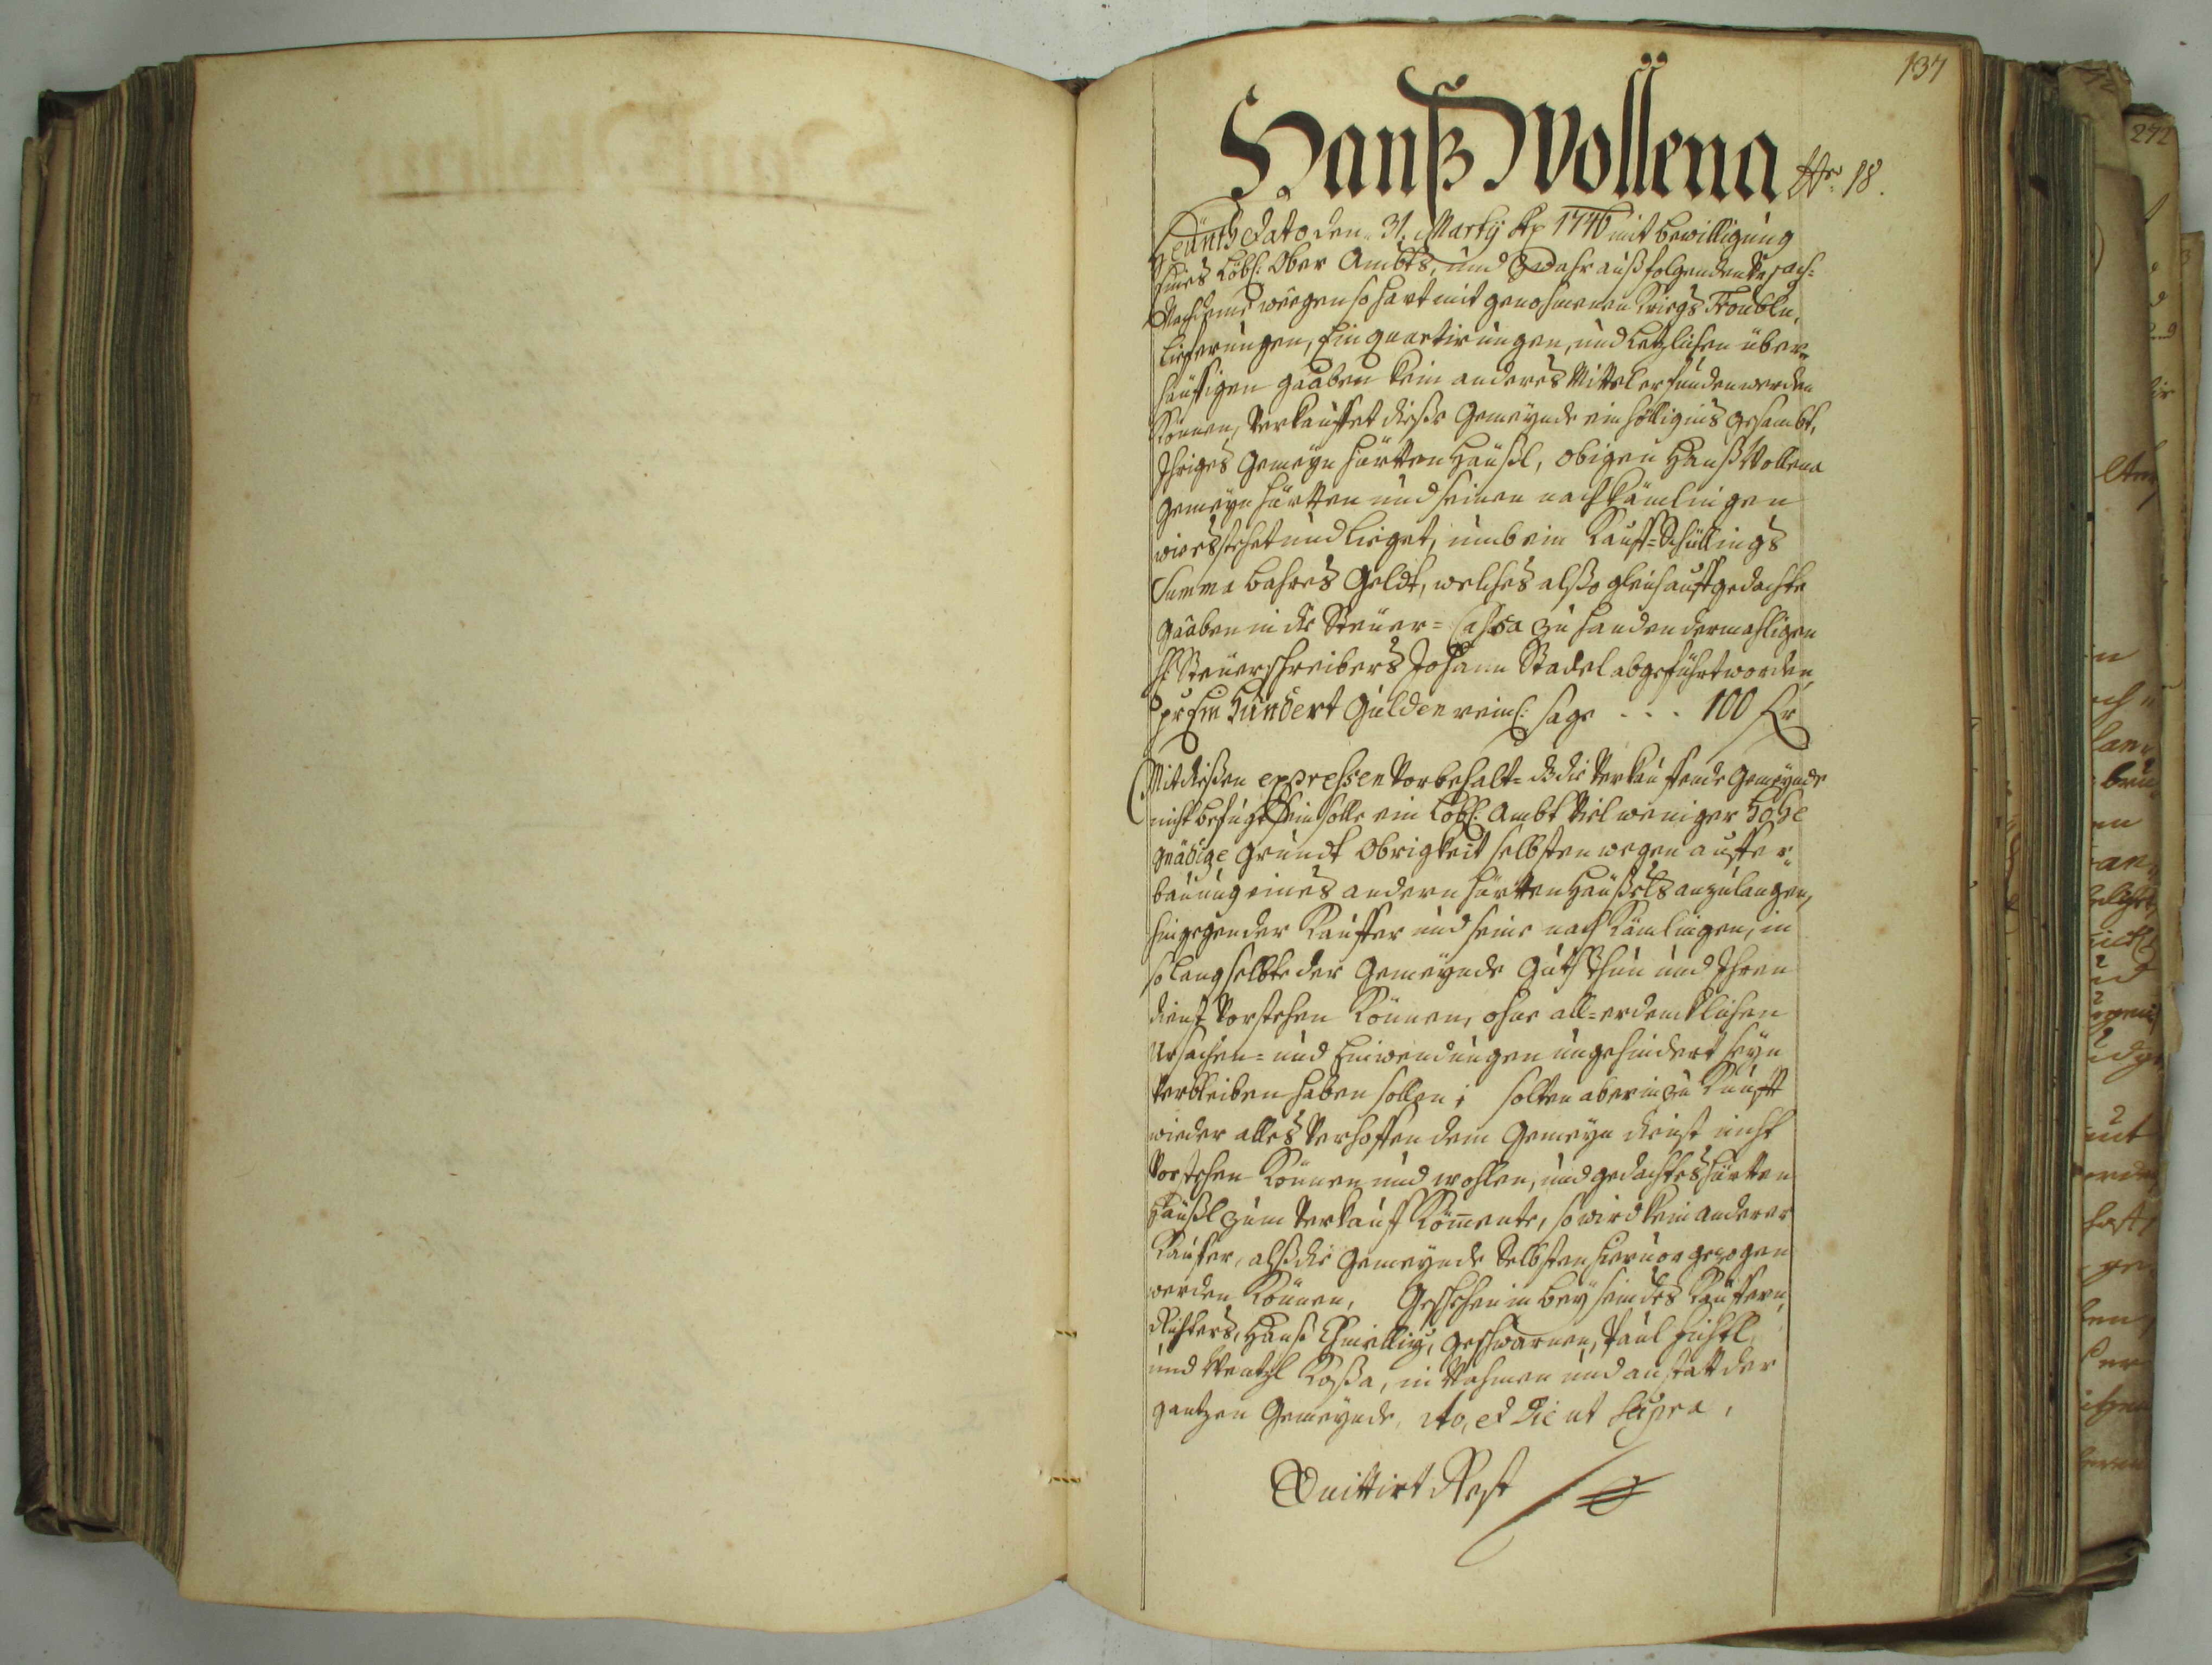 137
Hanß Wollena Nr: 18.
Heünth Dato den 31. Martij Ao 1746 mit bewilligung
Eines Löbl: Ober Ambts, und Zwahr auß folgenden Ursach:
Nachdeme wëegen so hart mit genohmenen Kriegs Troublen,
Lieferungen, Einquartirungen, und Letzlichen über„
häuffigen gaaben kein anderes Mittel erfunden werden
Können, Verkauffet dieße Gemeÿnde einhölligins gesambt,
Ihriges Gemeÿn hürtten Häußl, obigen Hanß Wollena
Gemeÿn hürtten und seinen nachkömlingen
wie es stehet und Lieget, umb ein Kauff=Schüllings
Summa bahres Geldt, welches alßo gleich auff gedachte
Gaaben in die Steuer=Cassa zu handen dermahligen
H: Steüerschreibers Johann Stadel abgeführt worden,
pr Ein Hundert Gulden reinl: sage - - - 100 fr
Mit dießen expressen Vorbehalt= dz die Verkauffende Gemeÿnde
nicht befugt sein solle ein Löbl: Ambt Viel weniger Hohe
gnädige Grundt Obrigkeit selbsten wegen auffer„
bauung eines andern hürtten Häußels anzulangen,
hingegen der Kauffer und seine nach Kömlingen, in
so lang selbte der Gemeÿnde Guths thun und Ihren
dienst Vorstehen Können, ohne all=erdencklichen
Ursachen= und Einwendungen ungehindert seÿn
Verbleiben haben sollen; solten aber in zu Kunfft
wieder alles Verhoffen dem Gemeÿn dienst nicht
Vorstehen Können und wohlen, und gedachtes hürtten
Häußl zum Verkauff Kömente, so wird kein anderer
Kauffer, alß die Gemeÿnde Selbsten hiervor gezogen
werden Können, Geschehen in beÿ sein des Kauffern,
Richters, Hanß , Geschwornen, Paul Fichtl,
und Wentzl Koßa, in Nahmen und anstatt der
gantzen Gemeÿnde, Ao, et Die ut supra,
Quittirt Rest
272